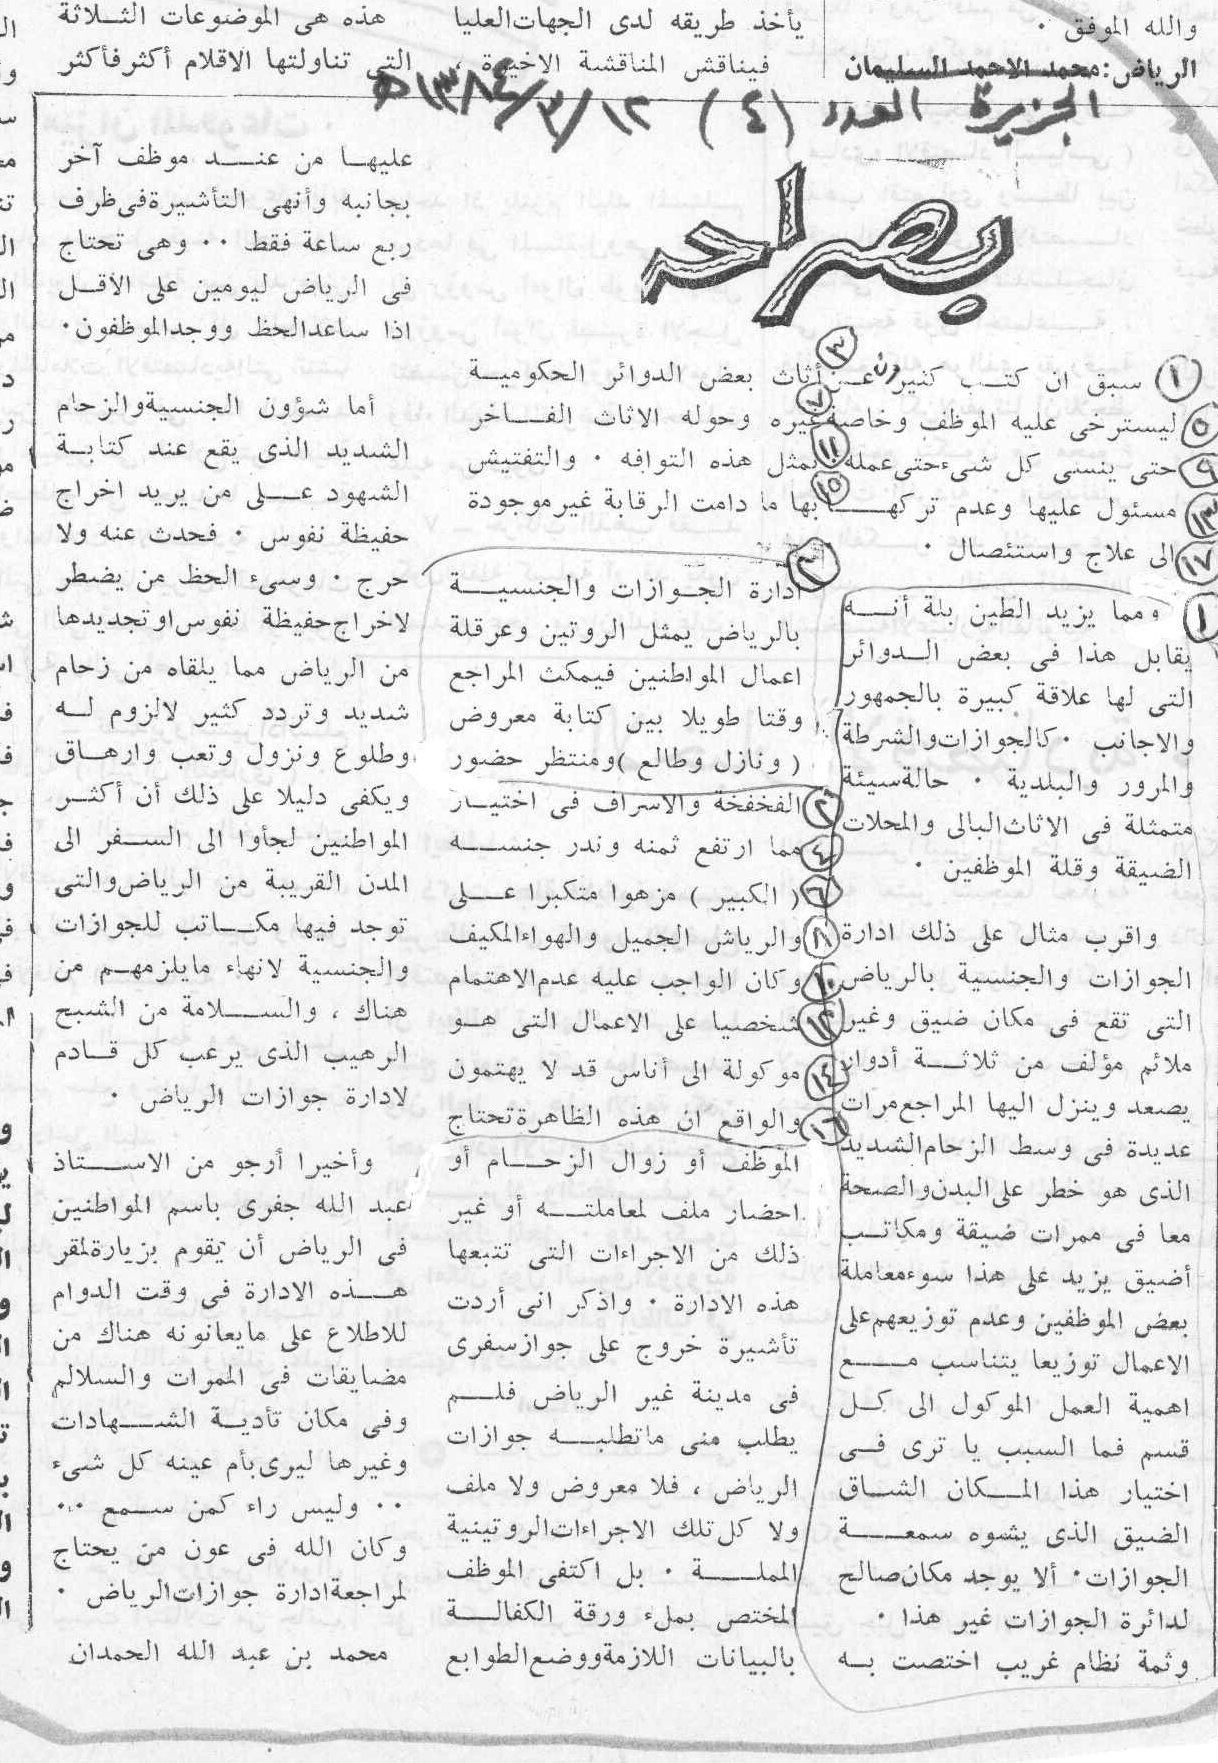 والله الموفق ·
الرياض: محمد الاحمد السليمان
يأخذ طريقه لدى الجهات العليا
فيناقش المناقشة الاخيرة ،
هذه هى الموضوعات الثلاثة
التى تناولتها الاقلام أكثر فأكثر
الجزيرة العدد (٤) ١٢/٣/١٣٨٤ه
بصراحه
١ سبق ان كتب كثيرون عن ٣ أثاث بعض الدوائر الحكومية
٥ ليسترخى عليه الموظف وخاصة ٧ غيره وحوله الاثاث الفاخر
٩ حتى ينسى كل شىء حتى عمله ١١ بمثل هذه التوافه · والتفتيش
١٣ مسئول عليها وعدم تركها ١٥ بها ما دامت الرقابة غير موجودة
١٧ الى علاج واستئصال ·
١ ومما يزيد الطين بلة أنه
يقابل هذا فى بعض الدوائر
التى لها علاقة كبيرة بالجمهور
والاجانب · كالجوازات والشرطة
والمرور والبلدية · حالة سيئة
متمثلة فى الاثاث البالى والمحلات
الضيقة وقلة الموظفين ·
واقرب مثال على ذلك ادارة
الجوازات والجنسية بالرياض
التى تقع فى مكان ضيق وغير
ملائم مؤلف من ثلاثة أدوار
يصعد وينزل اليها المراجع مرات
عديدة فى وسط الزحام الشديد
الذى هو خطر على البدن والصحة
معا فى ممرات ضيقة ومكاتب
أضيق يزيد على هذا سوء معاملة
بعض الموظفين وعدم توزيعهم على
الاعمال توزيعا يتناسب مع
اهمية العمل الموكول الى كل
قسم فما السبب يا ترى فى
اختيار هذا المكان الشاق
الضيق الذى يشوه سمعة
الجوازات · ألا يوجد مكان صالح
لدائرة الجوازات غير هذا ·
وثمة نظام غريب اختصت به
٢ ادارة الجوازات والجنسية
بالرياض يمثل الروتين وعرقلة
اعمال المواطنين فيمكث المراجع
وقتا طويلا بين كتابة معروض
( ونازل وطالع ) ومنتظر حضور
٢ الفخفخة والاسراف فى اختيار
٤ مما ارتفع ثمنه وندر جنسه
٦ ( الكبير ) مزهوا متكبرا على
٨ والرياش الجميل والهواء المكيف
١٠ وكان الواجب عليه عدم الاهتمام
١٢ شخصيا على الاعمال التى هو
١٤ موكولة الى أناس قد لا يهتمون
١٦ والواقع ان هذه الظاهرة تحتاج
الموظف أو زوال الزحام أو
احضار ملف لمعاملته أو غير
ذلك من الاجراءات التى تتبعها
هذه الادارة · واذكر انى أردت
تأشيرة خروج على جواز سفرى
فى مدينة غير الرياض فلم
يطلب منى ما تطلبه جوازات
الرياض ، فلا معروض ولا ملف
ولا كل تلك الاجراءات الروتينية
المملة · بل اكتفى الموظف
المختص بملء ورقة الكفالة
بالبيانات اللازمة ووضع الطوابع
عليها من عند موظف آخر
بجانبه وأنهى التأشيرة فى ظرف
ربع ساعة فقط ·· وهى تحتاج
فى الرياض ليومين على الأقل
اذا ساعد الحظ ووجد الموظفون ·
أما شؤون الجنسية والزحام
الشديد الذى يقع عند كتابة
الشهود على من يريد اخراج
حفيظة نفوس · فحدث عنه ولا
حرج · وسىء الحظ من يضطر
لاخراج حفيظة نفوس او تجديدها
من الرياض مما يلقاه من زحام
شديد وتردد كثير لا لزوم له
وطلوع ونزول وتعب وارهاق
ويكفى دليلا على ذلك أن أكثر
المواطنين لجأوا الى السفر الى
المدن القريبة من الرياض والتى
توجد فيها مكاتب للجوازات
والجنسية لانهاء ما يلزمهم من
هناك ، والسلامة من الشبح
الرهيب الذى يرعب كل قادم
لادارة جوازات الرياض ·
وأخيرا أرجو من الاستاذ
عبد الله جفرى باسم المواطنين
فى الرياض أن يقوم بزيارة لمقر
هذه الادارة فى وقت الدوام
للاطلاع على ما يعانونه هناك من
مضايقات فى الممرات والسلالم
وفى مكان تأدية الشهادات
وغيرها ليرى بأم عينه كل شىء
·· وليس راء كمن سمع ··
وكان الله فى عون من يحتاج
لمراجعة ادارة جوازات الرياض ·
محمد بن عبد الله الحمدان